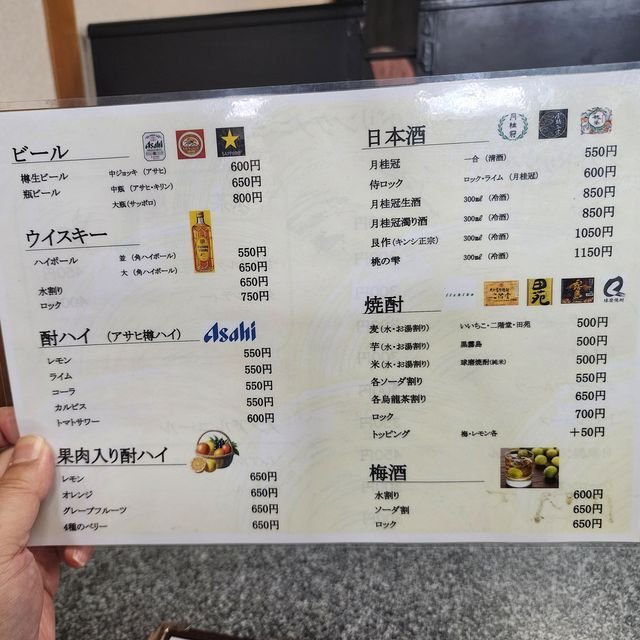 ビール
樽生ビール 中ジョッキ (アサヒ) 600円
瓶ビール 中瓶 (アサヒ・キリン) 650円
大瓶(サッポロ) 800円
ウイスキー
ハイボール 並 (角ハイボール) 550円
大 (角ハイボール) 650円
水割り 650円
ロック 750円
酎ハイ (アサヒ樽ハイ) Asahi
レモン 550円
ライム 550円
コーラ 550円
カルピス 550円
トマトサワー 600円
果肉入り酎ハイ
レモン 650円
オレンジ 650円
グレープフルーツ 650円
4種のベリー 650円
日本酒 月桂冠
月桂冠 一合 (清酒) 550円
侍ロック ロック・ライム (月桂冠) 600円
月桂冠生酒 300㎖ (冷酒) 850円
月桂冠濁り酒 300㎖ (冷酒) 850円
艮作 (キンシ正宗) 300㎖ (冷酒) 1050円
桃の雫 300㎖ (冷酒) 1150円
焼酎 iichiko 二階堂 田苑 球磨焼酎
麦 (水・お湯割り) いいちこ・二階堂・田苑 500円
芋 (水・お湯割り) 黒霧島 500円
米 (水・お湯割り) 球磨焼酎(純米) 500円
各ソーダ割り 550円
各烏龍茶割り 650円
ロック 700円
トッピング 梅・レモン各 +50円
梅酒
水割り 600円
ソーダ割 650円
ロック 650円